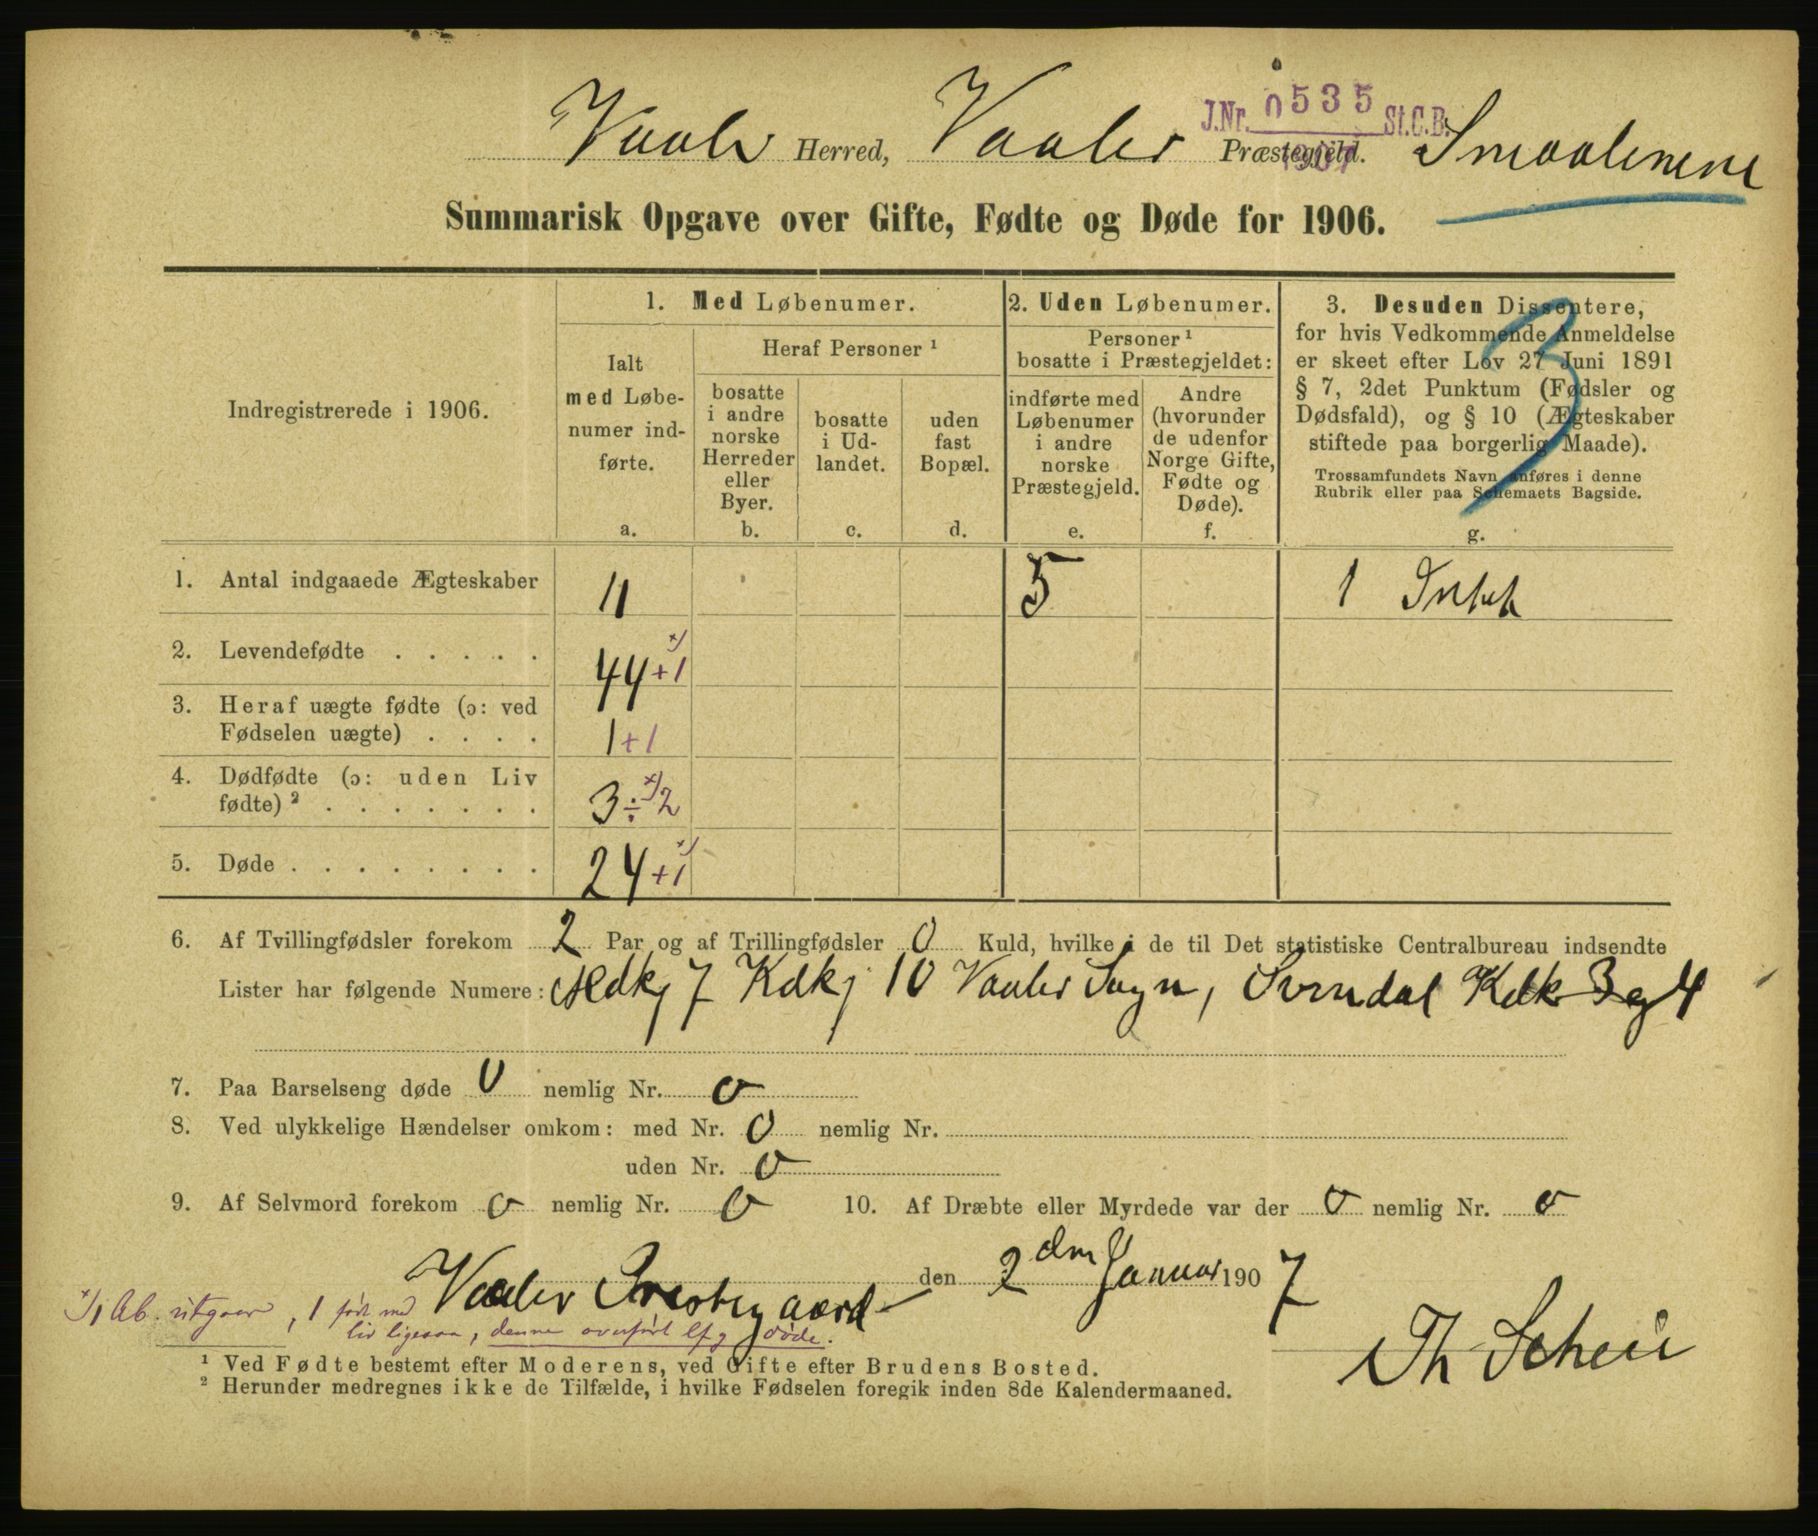 J.Nr. 0535 St.C.B.
1907
Vaaler Herred, Vaaler Præstegjeld. Smaalenene
Summarisk Opgave over Gifte, Fødte og Døde for 1906.
Indregistrerede i 1906.
1. Med Løbenumer.
Ialt
med Løbe-
numer ind-
førte.
a.
Heraf Personer ¹
bosatte
i andre
norske
Herreder
eller
Byer.
b.
bosatte
i Ud-
landet.
c.
uden
fast
Bopæl.
d.
2. Uden Løbenumer.
Personer ¹
bosatte i Præstegjeldet:
indførte med
Løbenumer
i andre
norske
Præstegjeld.
e.
Andre
(hvorunder
de udenfor
Norge Gifte,
Fødte og
Døde).
f.
3. Desuden Dissentere,
for hvis Vedkommende Anmeldelse
er skeet efter Lov 27 Juni 1891
§ 7, 2det Punktum (Fødsler og
Dødsfald), og § 10 (Ægteskaber
stiftede paa borgerlig Maade).
Trossamfundets Navn anføres i denne
Rubrik eller paa Schemaets Bagside.
g.
3
1. Antal indgaaede Ægteskaber 11 5 1
2. Levendefødte . . . . . 44 +1 x)
3. Heraf uægte fødte (ɔ: ved
Fødselen uægte) . . . . 1 +1
4. Dødfødte (ɔ: uden Liv
fødte) ² . . . . . . . 3 ÷ 2 x)
5. Døde . . . . . . . . 24 +1 x)
6. Af Tvillingfødsler forekom 2 Par og af Trillingfødsler 0 Kuld, hvilke i de til Det statistiske Centralbureau indsendte
Lister har følgende Numere: 7 Kdkj 10 Vaaler Sogn, Svindal Kdk 3 og 4
7. Paa Barselseng døde 0 nemlig Nr. 0
8. Ved ulykkelige Hændelser omkom: med Nr. 0 nemlig Nr.
uden Nr. 0
9. Af Selvmord forekom 0 nemlig Nr. 0 10. Af Dræbte eller Myrdede var der 0 nemlig Nr. 0
Vaaler Prestegaard den 2den Januar 1907
Th Scheie
x) 1 Ab. utgaar, 1 født med
liv ligesaa, denne overført lfg døde.
¹ Ved Fødte bestemt efter Moderens, ved Gifte efter Brudens Bosted.
² Herunder medregnes ikke de Tilfælde, i hvilke Fødselen foregik inden 8de Kalendermaaned.